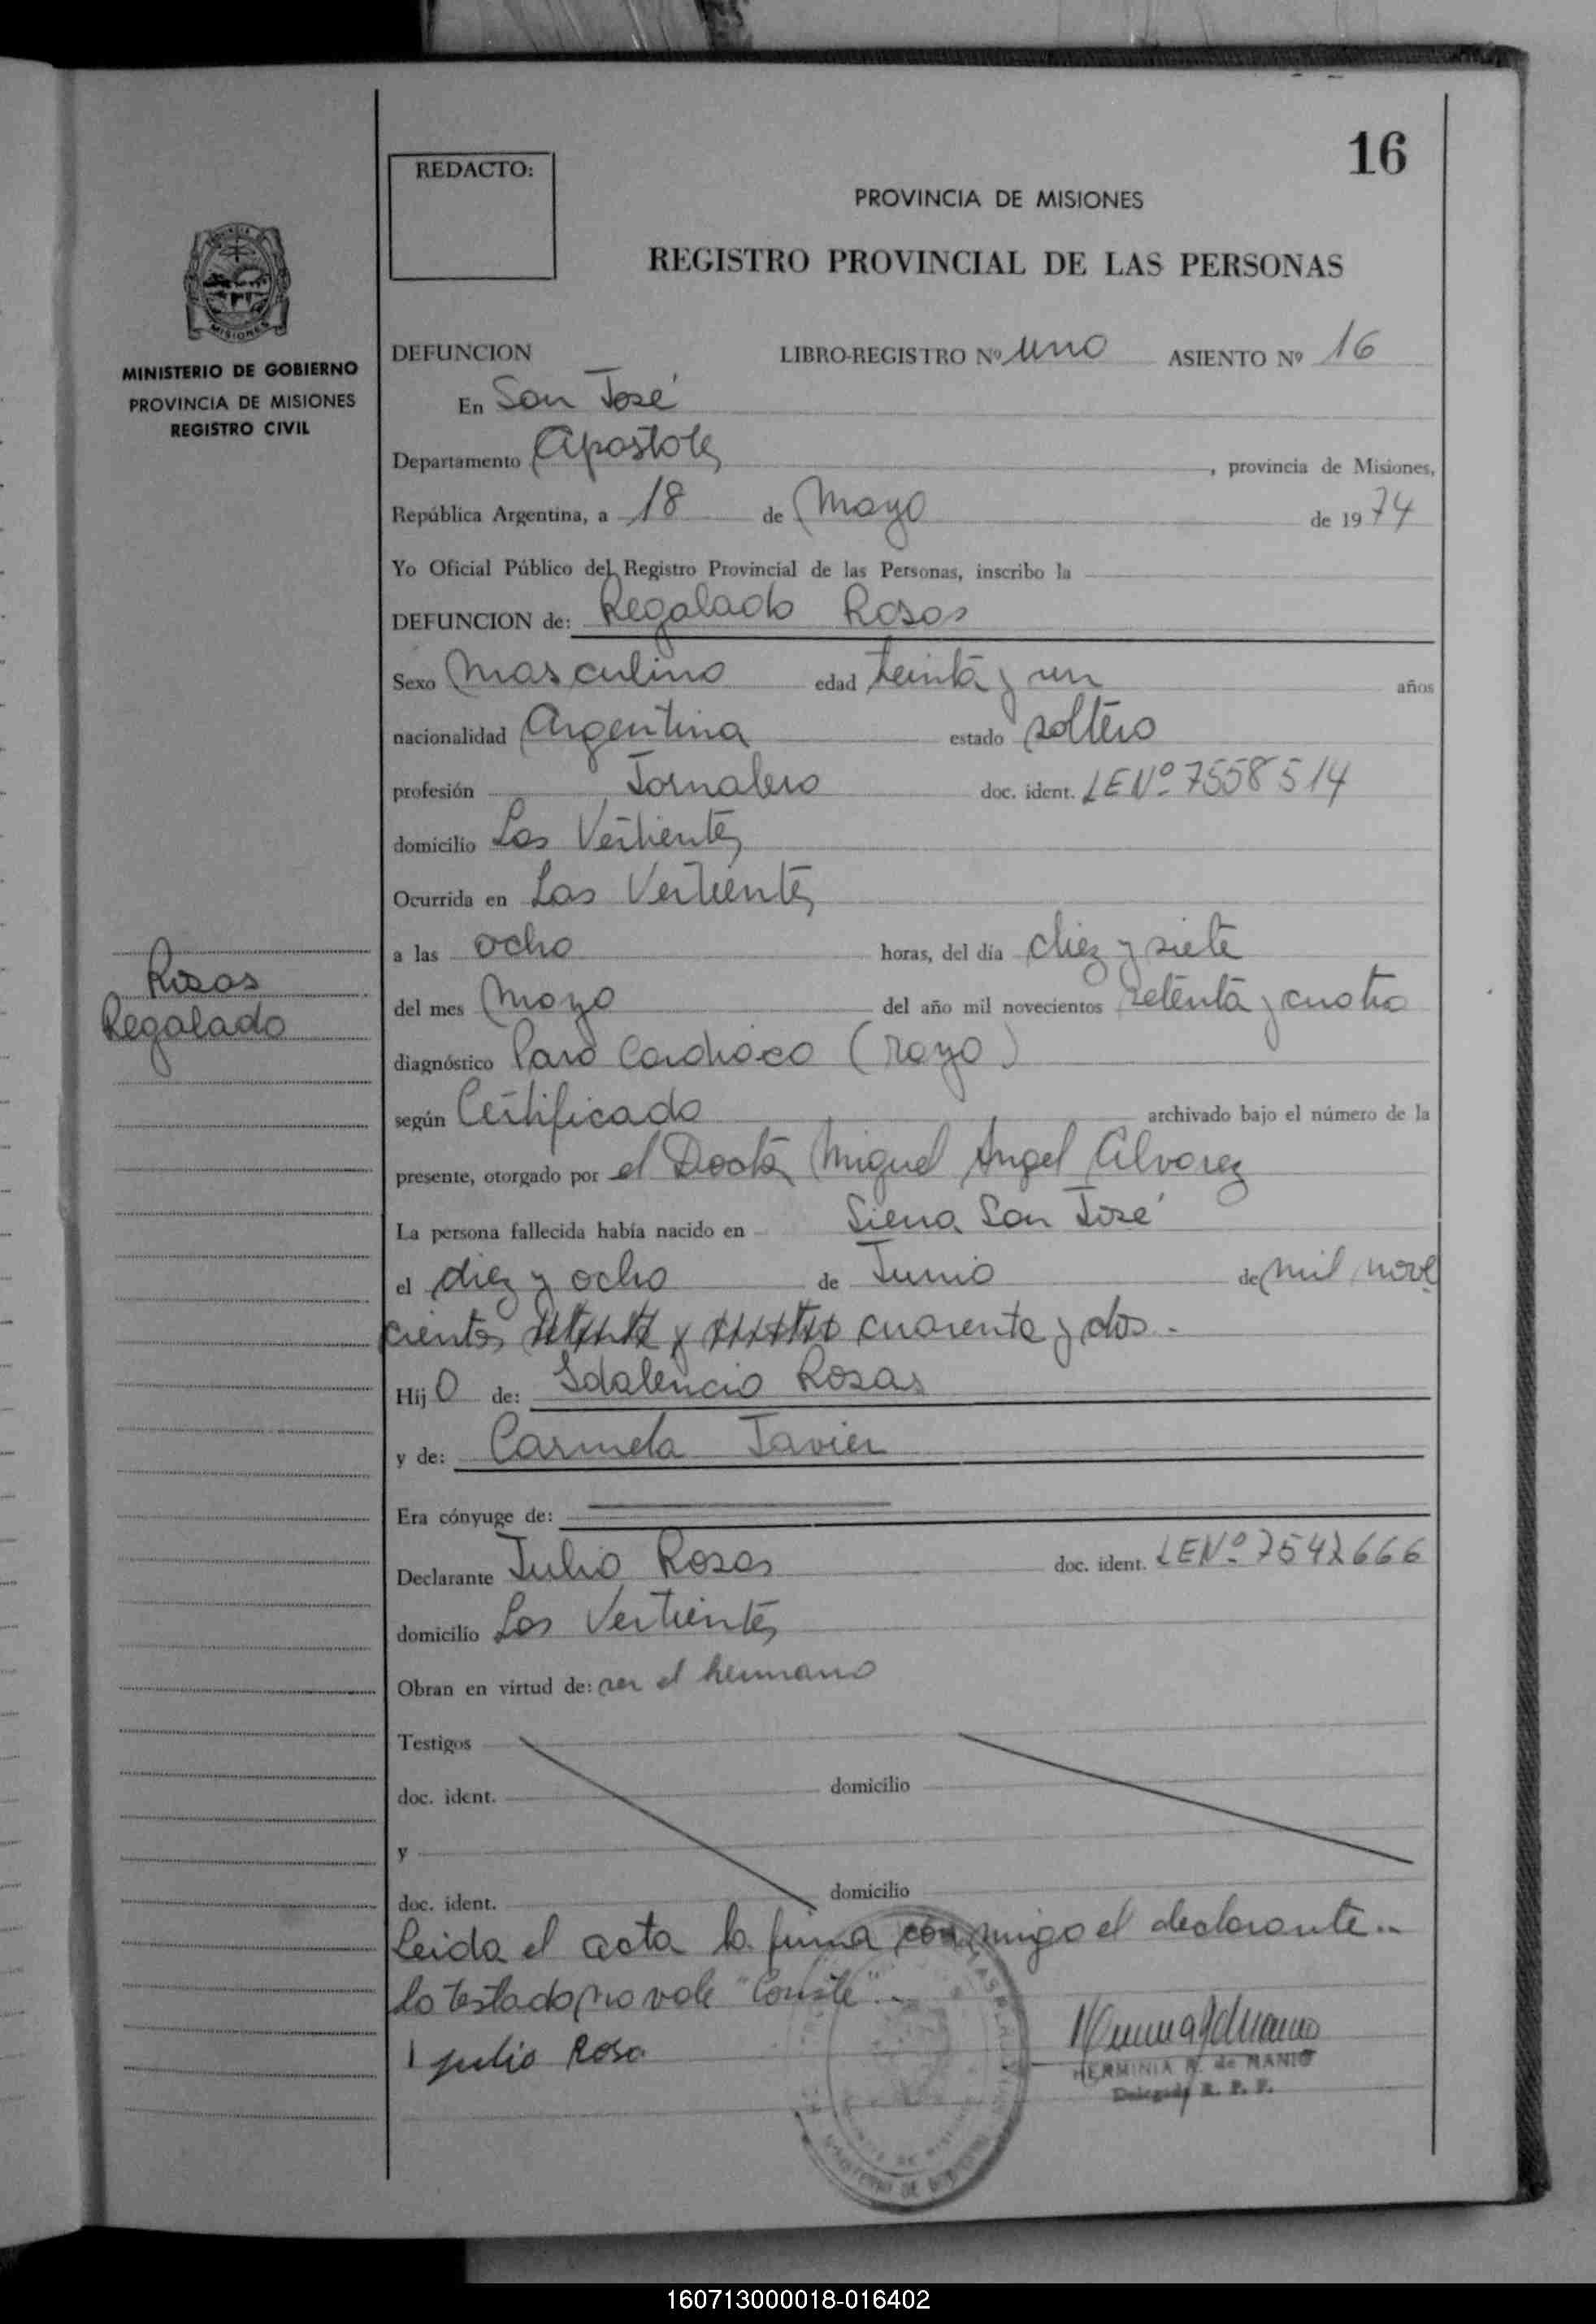 16
REDACTO:
PROVINCIA DE MISIONES
REGISTRO PROVINCIAL DE LAS PERSONAS
MISIONES
MINISTERIO DE GOBIERNO
PROVINCIA DE MISIONES
REGISTRO CIVIL
DEFUNCION LIBRO-REGISTRO Nº uno ASIENTO Nº 16
En San José
Departamento Apostoles, provincia de Misiones,
República Argentina, a 18 de Mayo de 1974
Yo Oficial Público del Registro Provincial de las Personas, inscribo la
DEFUNCION de: Regalado Rosas
Sexo Masculino edad treinta y un años
nacionalidad Argentina estado soltero
profesión Jornalero doc. ident. LE Nº 7558514
domicilio Las Vertientes
Ocurrida en Las Vertientes
a las ocho horas, del día diez y siete
Rosas
Regalado
del mes Mayo del año mil novecientos setenta y cuatro
diagnóstico Paro Cardiaco (rayo)
según Certificado archivado bajo el número de la
presente, otorgado por el Doctor Miguel Angel Alvarez
La persona fallecida había nacido en Sierra San José
el diez y ocho de Junio de mil nove
cientos setenta y cuatro cuarenta y dos.-
Hijo de: Idalencio Rosas
y de: Carmela Javier
Era cónyuge de:
Declarante Julio Rosas doc. ident. LE Nº 7542666
domicilio Las Vertientes
Obran en virtud de: ser el hermano
Testigos
doc. ident. domicilio
y
doc. ident. domicilio
Leida el acta la firma conmigo el declarante..
lo testado no vale "Conste"..
Julio Rosa
HERMINIA R. de MANIO
Delegada R. P. P.
160713000018-016402